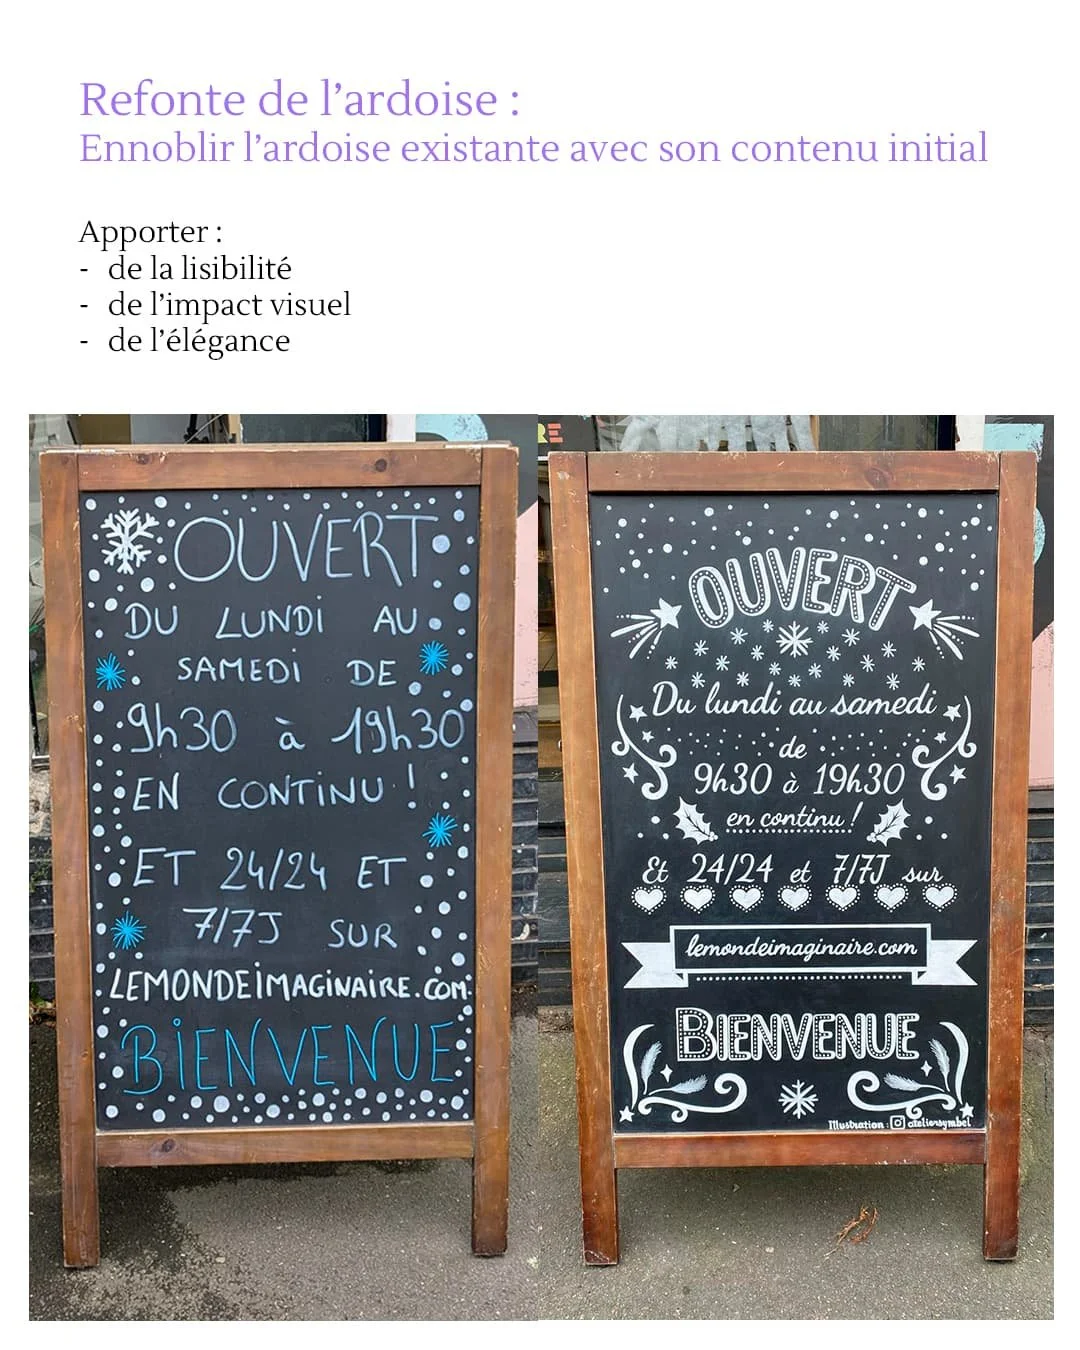 Refonte de l’ardoise :
Ennoblir l’ardoise existante avec son contenu initial
Apporter :
- de la lisibilité
- de l’impact visuel
- de l’élégance
OUVERT
DU LUNDI AU
SAMEDI DE
9h30 à 19h30
EN CONTINU !
ET 24/24 ET
7/7J SUR
LEMONDEIMAGINAIRE.COM
BIENVENUE
RE
OUVERT
Du lundi au samedi
de
9h30 à 19h30
en continu !
Et 24/24 et 7/7J sur
lemondeimaginaire.com
BIENVENUE
Illustration : ateliersymbel